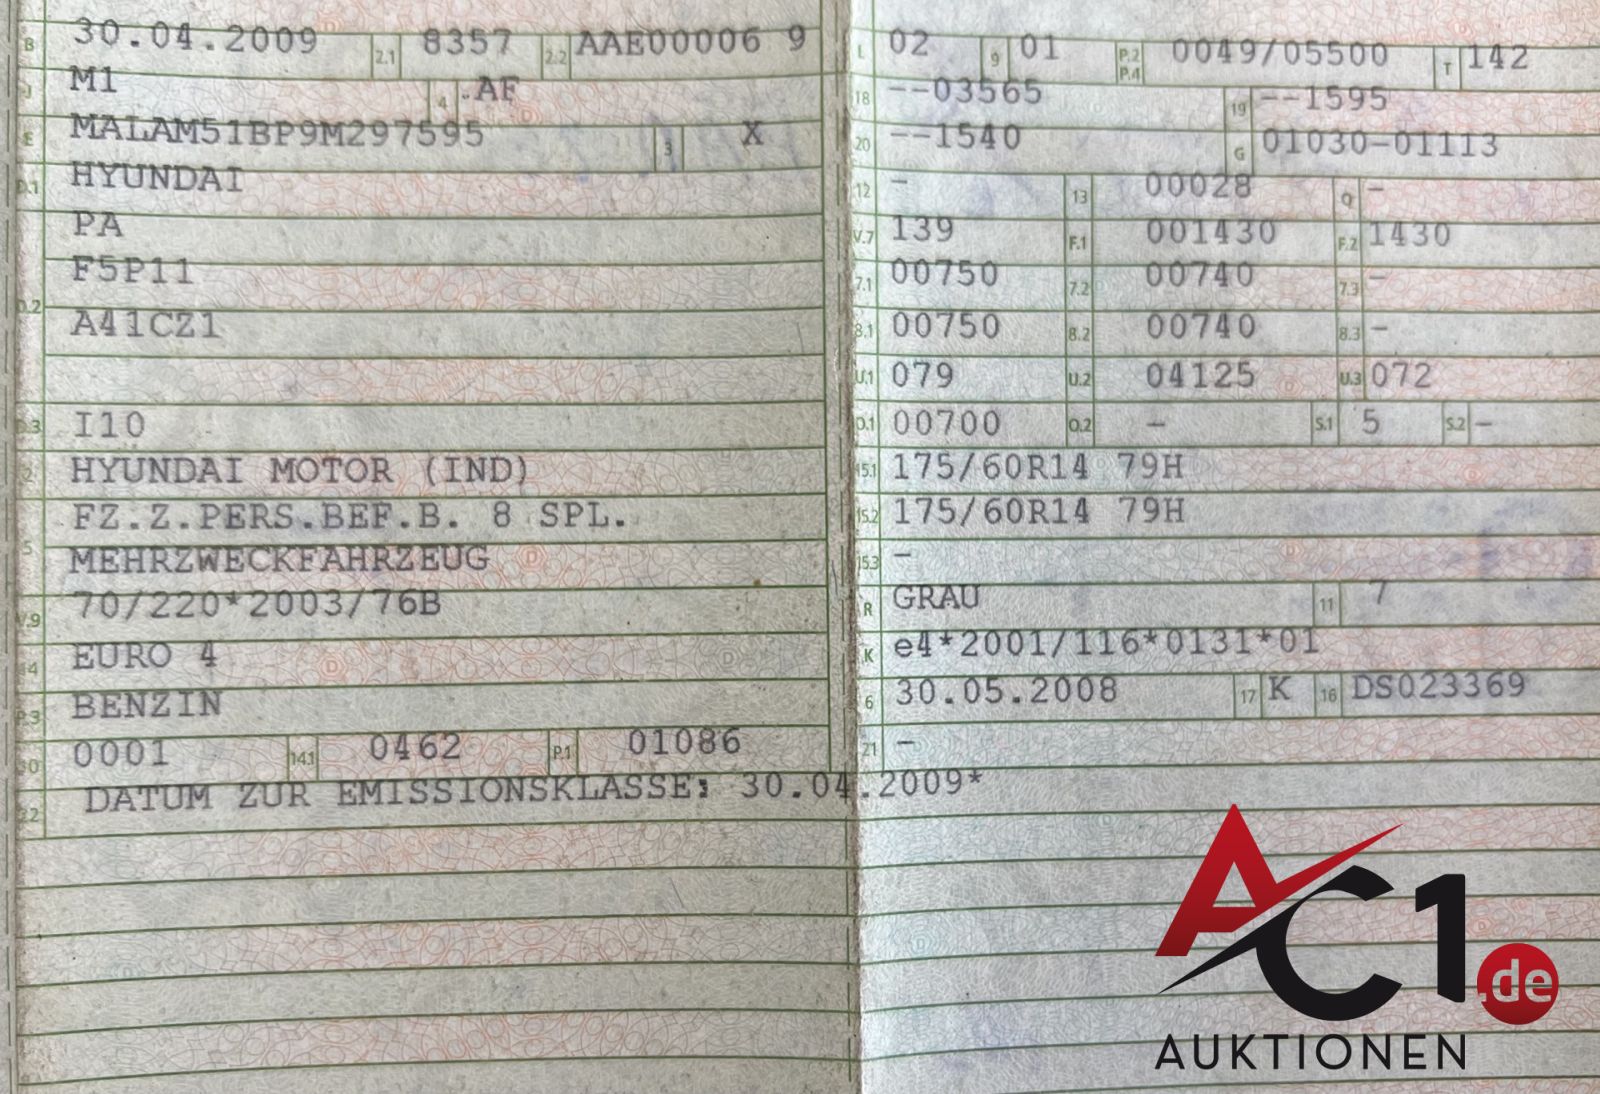 B 30.04.2009 2.1 8357 2.2 AAE00006 9
J M1 4 AF
E MALAM51BP9M297595 3 X
D.1 HYUNDAI
PA
F5P11
D.2 A41CZ1
D.3 I10
2 HYUNDAI MOTOR (IND)
FZ.Z.PERS.BEF.B. 8 SPL.
5 MEHRZWECKFAHRZEUG
V.9 70/220*2003/76B
14 EURO 4
P.3 BENZIN
10 0001 14.1 0462 P.1 01086
22 DATUM ZUR EMISSIONSKLASSE: 30.04.2009*
L 02 9 01 P.2 P.4 0049/05500 T 142
18 --03565 19 --1595
20 --1540 G 01030-01113
12 - 13 00028 Q -
V.7 139 F.1 001430 F.2 1430
7.1 00750 7.2 00740 7.3 -
8.1 00750 8.2 00740 8.3 -
U.1 079 U.2 04125 U.3 072
O.1 00700 O.2 - S.1 5 S.2 -
15.1 175/60R14 79H
15.2 175/60R14 79H
15.3 -
R GRAU 11 7
K e4*2001/116*0131*01
6 30.05.2008 17 K 16 DS023369
21 -
AC1.de
AUKTIONEN